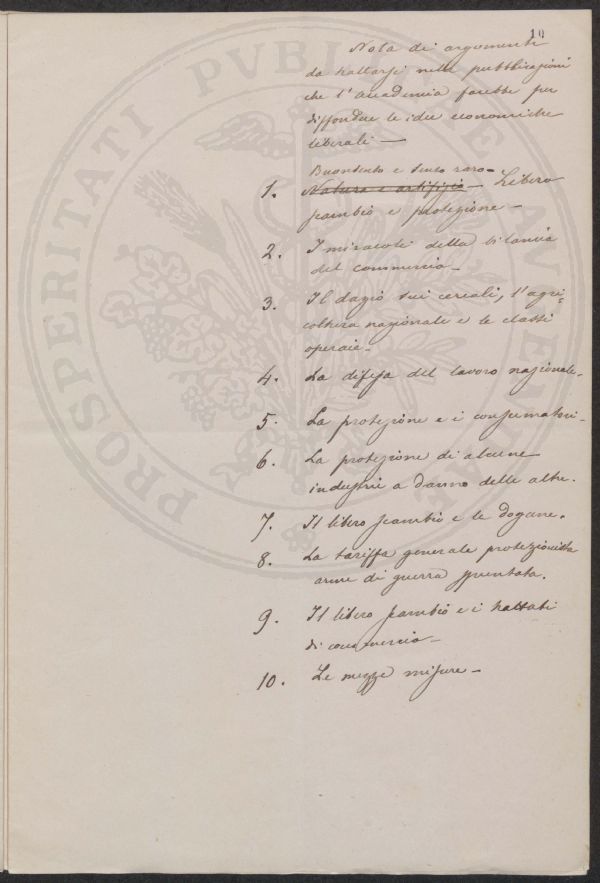 10
Nota di argomenti
da trattarsi nelle pubblicazioni
che l'Accademia farebbe per
diffondere le idee economiche
liberali —
Buonsenso e senso raro -
1. Natura e artifizio - Libero
scambio e protezione -
2. I miracoli della bilancia
del commercio -
3. Il dazio sui cereali, l'agri-
coltura nazionale e le classi
operaie -
4. La difesa del lavoro nazionale -
5. La protezione e i consumatori -
6. La protezione di alcune
industrie a danno delle altre.
7. Il libero scambio e le dogane.
8. La tariffa generale protezionista
arme di guerra spuntata.
9. Il libero scambio e i trattati
di commercio -
10. Le mezze misure -
PROSPERITATI PVBLICAE AVGENDAE